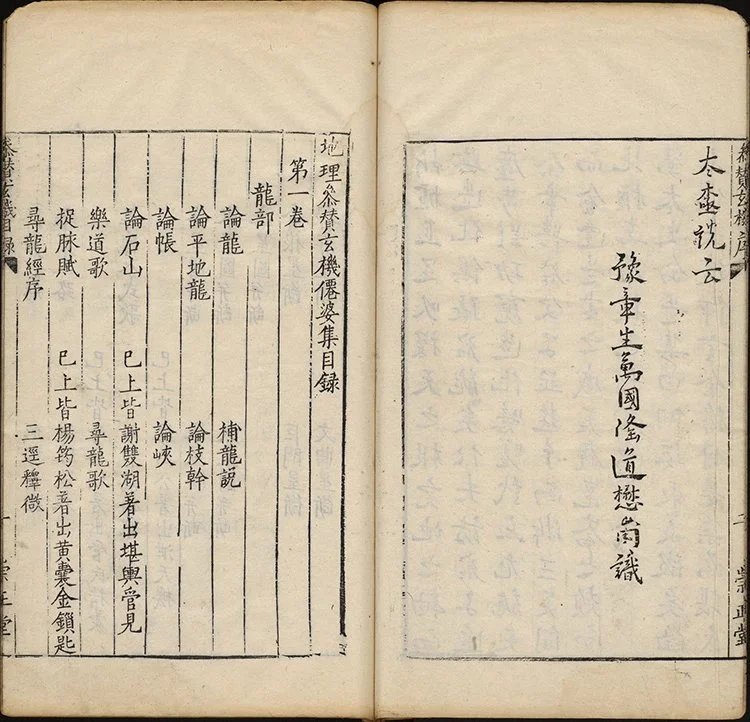 參贊玄機序
崇正堂
說云
豫章生萬國隆道懋甫識
地理叅贊玄機僊婆集目録
第一卷
龍部
論龍 補龍説
論平地龍 論枝幹
論帳 論峽
論石山 巳上皆謝雙湖著出堪輿管見
樂道歌 尋龍歌
捉脉賦 巳上皆楊筠松著出黄囊金鎖匙
尋龍經序 三逕釋微
叅贊玄機目録
一
崇正堂